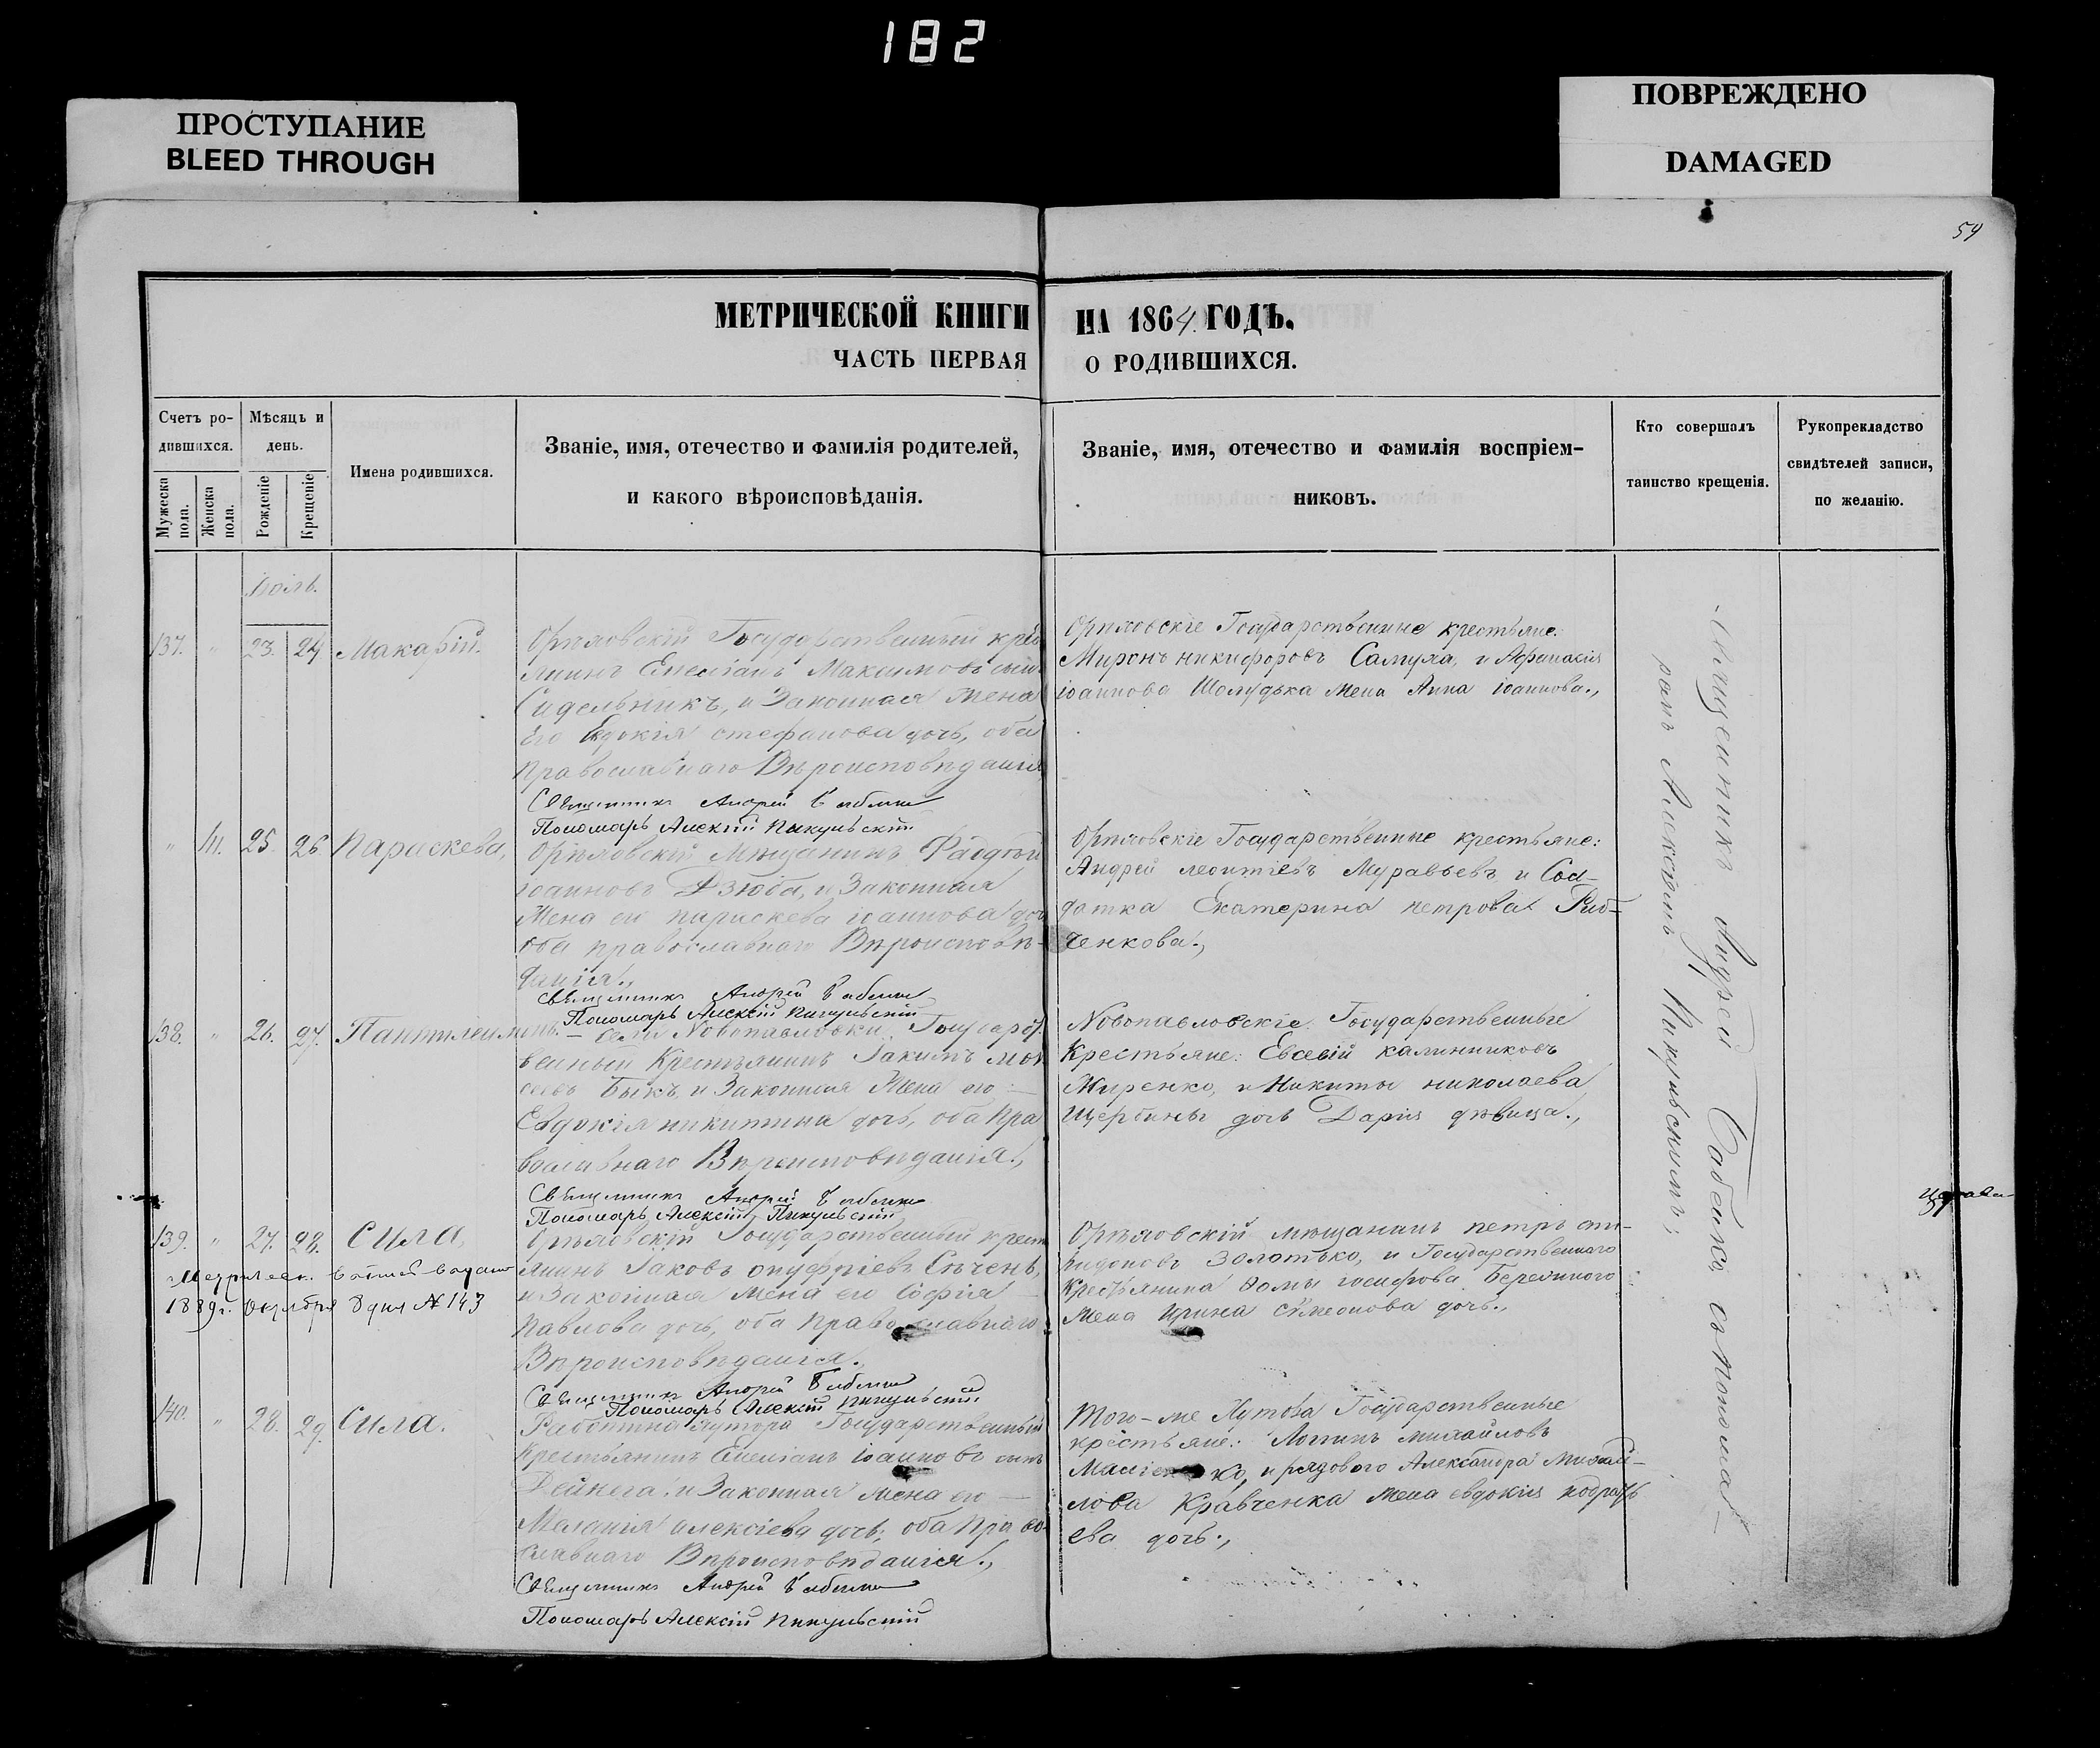 182
ПРОСТУПАНИЕ
BLEED THROUGH
ПОВРЕЖДЕНО
DAMAGED
59
МЕТРИЧЕСКОЙ КНИГИ НА 1864 ГОДЪ.
ЧАСТЬ ПЕРВАЯ О РОДИВШИХСЯ.
Счетъ ро-
дившихся.
Мужеска пола.
Женска пола.
Мѣсяцъ и
день.
Рожденіе
Крещеніе
Имена родившихся.
Званіе, имя, отечество и фамилія родителей,
и какого вѣроисповѣданія.
Званіе, имя, отечество и фамилія воспріем-
никовъ.
Кто совершалъ
таинство крещенія.
Рукоприкладство
свидѣтелей записи,
по желанію.
137. " 23. 24 Макарій.
Орѣховскій Государственный крест
янинъ Емеліанъ Максимовъ сынъ
Сидельникъ, и Законная Жена
Его Евдокія стефанова дочь, оба
православнаго Вѣроисповѣданія
Священникъ Андрей
Пономарь Алексій Пикульскій
Орѣховскіе Государственные крестьяне:
Миронъ никифоровъ Самуха, и Афанасія
іоаннова Шолудька жена Анна іоаннова.,
" 111. 25. 26. Параскева,
Орѣховскій Мѣщанинъ Фаддей
іоанновъ Дзюба, и Законная
Жена его параскева іоаннова доч
оба православнаго Вѣроисповѣ-
данія.,
Священникъ Андрей
Пономарь Алексій Пикульскій
Орѣховскіе Государственные крестьяне:
Андрей леонтіевъ Муравьевъ и Сол-
датка Екатерина петрова Ряб-
ченкова.,
138. " 26. 27. Пантилеимонъ.
села Новопавловки Государст
венный Крестьянинъ Іакимъ
Быкъ, и Законная Жена его —
Евдокія никитина дочь, оба Пра
вославнаго Вѣроисповѣданія.,
Священникъ Андрей
Пономарь Алексій Пикульскій
Новопавловскіе Государственные
Крестьяне: Евсевій калинниковъ
Жиренко, и Никиты николаева
Щербины дочь Дарія дѣвица.,
139. " 27. 28. Сила,
1889г. Октября 8 дня № 143
Орѣховскій Государственный крест
янинъ Іаковъ онуфріевъ Сѣчень,
и Законная Жена его Софія
Павлова дочь, оба Православнаго
Вѣроисповѣданія.
Священникъ Андрей
Пономарь Алексій Пикульскій
Орѣховскій мѣщанинъ петръ спи-
ридоновъ Золотько, и Государственнаго
Крестьянина Фомы іосифова Бережнаго
Жена Ирина сѵмеонова дочь.,
140. " 28. 29. Сила.
хутора Государственный
Крестьянинъ Емеліанъ іоанновъ сынъ
Дейнега. и Законная Жена его —
Меланія алексіева дочь; оба Право-
славнаго Вѣроисповѣданія.,
Священникъ Андрей
Пономарь Алексій Пикульскій
Того-же Хутора Государственные
крестьяне: Логинъ михайловъ
и рядового Александра Михай-
лова Кравченка жена евдокія
ева дочь.,
Священникъ Андрей съ понома-
ремъ Алексѣемъ Пикульскимъ.,